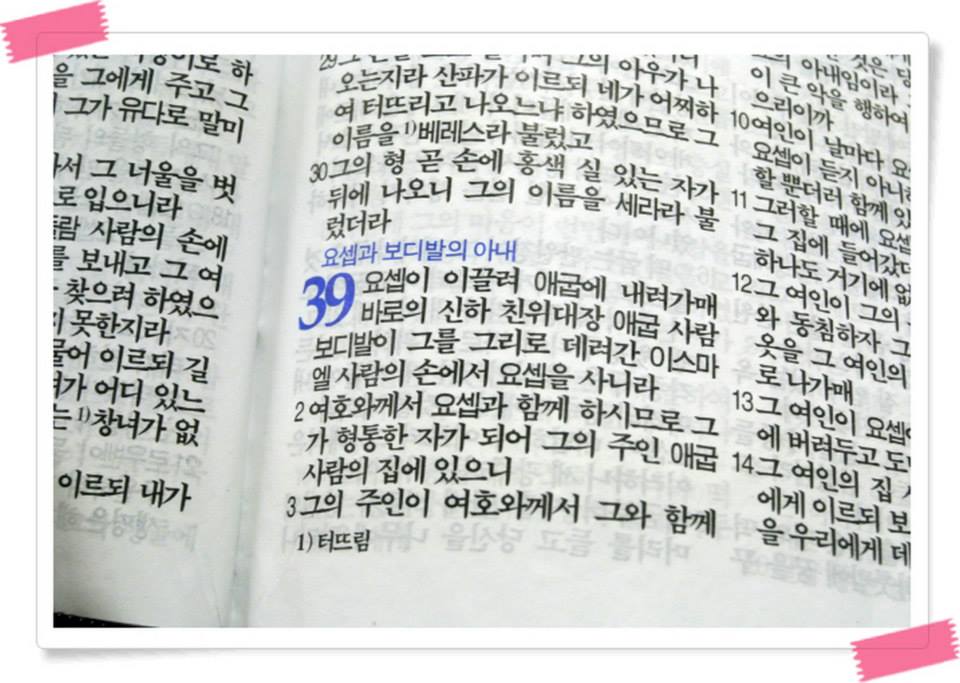 을 그에게 주고 그
그가 유다로 말미
서 그 너울을 벗
로 입으니라
람 사람의 손에
보내고 그 여
찾으려 하였으
못한지라
물어 이르되 길
가 어디 있느
는 1)창녀가 없
이르되 내가
오는지라 산파가 이르되 네가 어찌하
여 터뜨리고 나오느냐 하였으므로 그
이름을 1)베레스라 불렀고
30 그의 형 곧 손에 홍색 실 있는 자가
뒤에 나오니 그의 이름을 세라라 불
렀더라
요셉과 보디발의 아내
39 요셉이 이끌려 애굽에 내려가매
바로의 신하 친위대장 애굽 사람
보디발이 그를 그리로 데려간 이스마
엘 사람의 손에서 요셉을 사니라
2 여호와께서 요셉과 함께 하시므로 그
가 형통한 자가 되어 그의 주인 애굽
사람의 집에 있으니
3 그의 주인이 여호와께서 그와 함께
1) 터뜨림
의 아내임이라
이 큰 악을 행하여
으리이까
10 여인이 날마다
요셉이 듣지 아니하
할 뿐더러 함께 있
11 그러할 때에 요셉
그 집에 들어갔더
하나도 거기에 없
12 그 여인이 그의
와 동침하자 그
옷을 그 여인의
로 나가매
13 그 여인이 요셉
에 버려두고 도
14 그 여인의 집
에게 이르되 보
을 우리에게 데